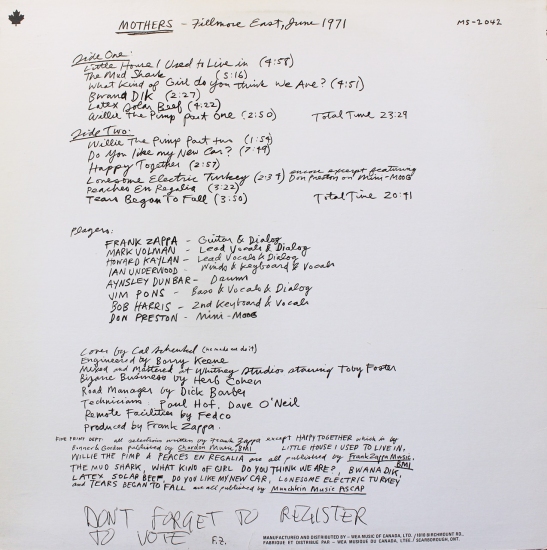 MOTHERS - Fillmore East, June 1971
MS-2042
Side One:
Little House I Used to Live in (4:58)
The Mud Shark (5:16)
What Kind of Girl do you think We Are? (4:51)
Bwana Dik (2:27)
Latex Solar Beef (4:22)
Willie The Pimp part one (2:50) Total Time 23:29
Side Two:
Willie The Pimp Part two (1:54)
Do You like my New Car? (7:49)
Happy Together (2:57)
Lonesome Electric Turkey (2:34) encore excerpt featuring
Don Preston on Mini-Moog
Peaches En Regalia (3:22)
Tears Began To Fall (3:50) Total Time 20:41
Players:
FRANK ZAPPA - Guitar & Dialog
MARK VOLMAN - Lead Vocals & Dialog
HOWARD KAYLAN - Lead Vocals & Dialog
IAN UNDERWOOD - Winds & Keyboard & Vocals
AYNSLEY DUNBAR - Drums
JIM PONS - Bass & Vocals & Dialog
BOB HARRIS - 2nd Keyboard & Vocals
DON PRESTON - Mini-Moog
Cover by Cal Schenkel
Engineered by Barry Keene
Mixed and Mastered at Whitney Studios starring Toby Foster
Bizarre Business by Herb Cohen
Road Manager by Dick Barber
Technicians: Paul Hof, Dave O'Neil
Remote Facilities by Fedco
Produced by Frank Zappa.
FINE PRINT DEPT: all selections written by Frank Zappa except HAPPY TOGETHER which is by
Bonner & Gordon published by Chardon Music, BMI LITTLE HOUSE I USED TO LIVE IN,
WILLIE THE PIMP & PEACES EN REGALIA are all published by Frank Zappa Music,
BMI
THE MUD SHARK, WHAT KIND OF GIRL DO YOU THINK WE ARE?, BWANA DIK,
LATEX SOLAR BEEF, DO YOU LIKE MY NEW CAR, LONESOME ELECTRIC TURKEY
and TEARS BEGAN TO FALL are all published by Munchkin Music ASCAP
DON'T FORGET TO REGISTER
TO VOTE F.Z.
MANUFACTURED AND DISTRIBUTED BY - WEA MUSIC OF CANADA, LTD. / 1810 BIRCHMOUNT RD.,
FABRIQUE ET DISTRIBUE PAR - WEA MUSIQUE DU CANADA, LTEE. / SCARBOROUGH, ONT.